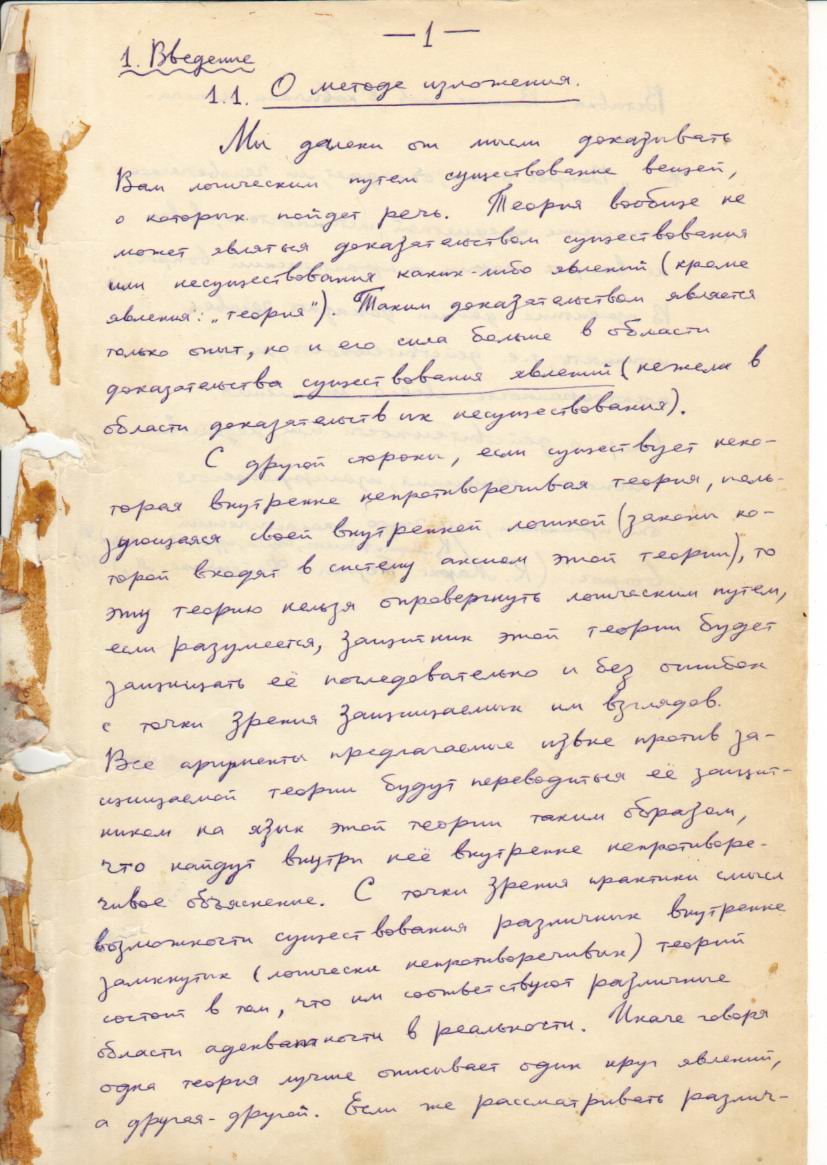 — 1 —
1. Введение
1.1. О методе изложения.
Мы далеки от мысли доказывать
Вам логическим путем существование вещей,
о которых пойдет речь. Теория вообще не
может являться доказательством существования
или несуществования каких-либо явлений (кроме
явления: „теория"). Таким доказательством является
только опыт, но и его сила больше в области
доказательства существования явлений (нежели в
области доказательств их несуществования).
С другой стороны, если существует неко-
торая внутренне непротиворечивая теория, поль-
зующаяся своей внутренней логикой (законы ко-
торой входят в систему аксиом этой теории), то
эту теорию нельзя опровергнуть логическим путем,
если разумеется, защитник этой теории будет
защищать её последовательно и без ошибок
с точки зрения защищаемых им взглядов.
Все аргументы предлагаемые извне против за-
щищаемой теории будут переводиться её защит-
ником на язык этой теории таким образом,
что найдут внутри неё внутренне непротиворе-
чивое объяснение. С точки зрения практики смысл
возможности существования различных внутренне
замкнутых (логически непротиворечивых) теорий
состоит в том, что им соответствуют различные
области адекватности в реальности. Иначе говоря
одна теория лучше описывает один круг явлений,
а другая - другой. Если же рассматривать различ-